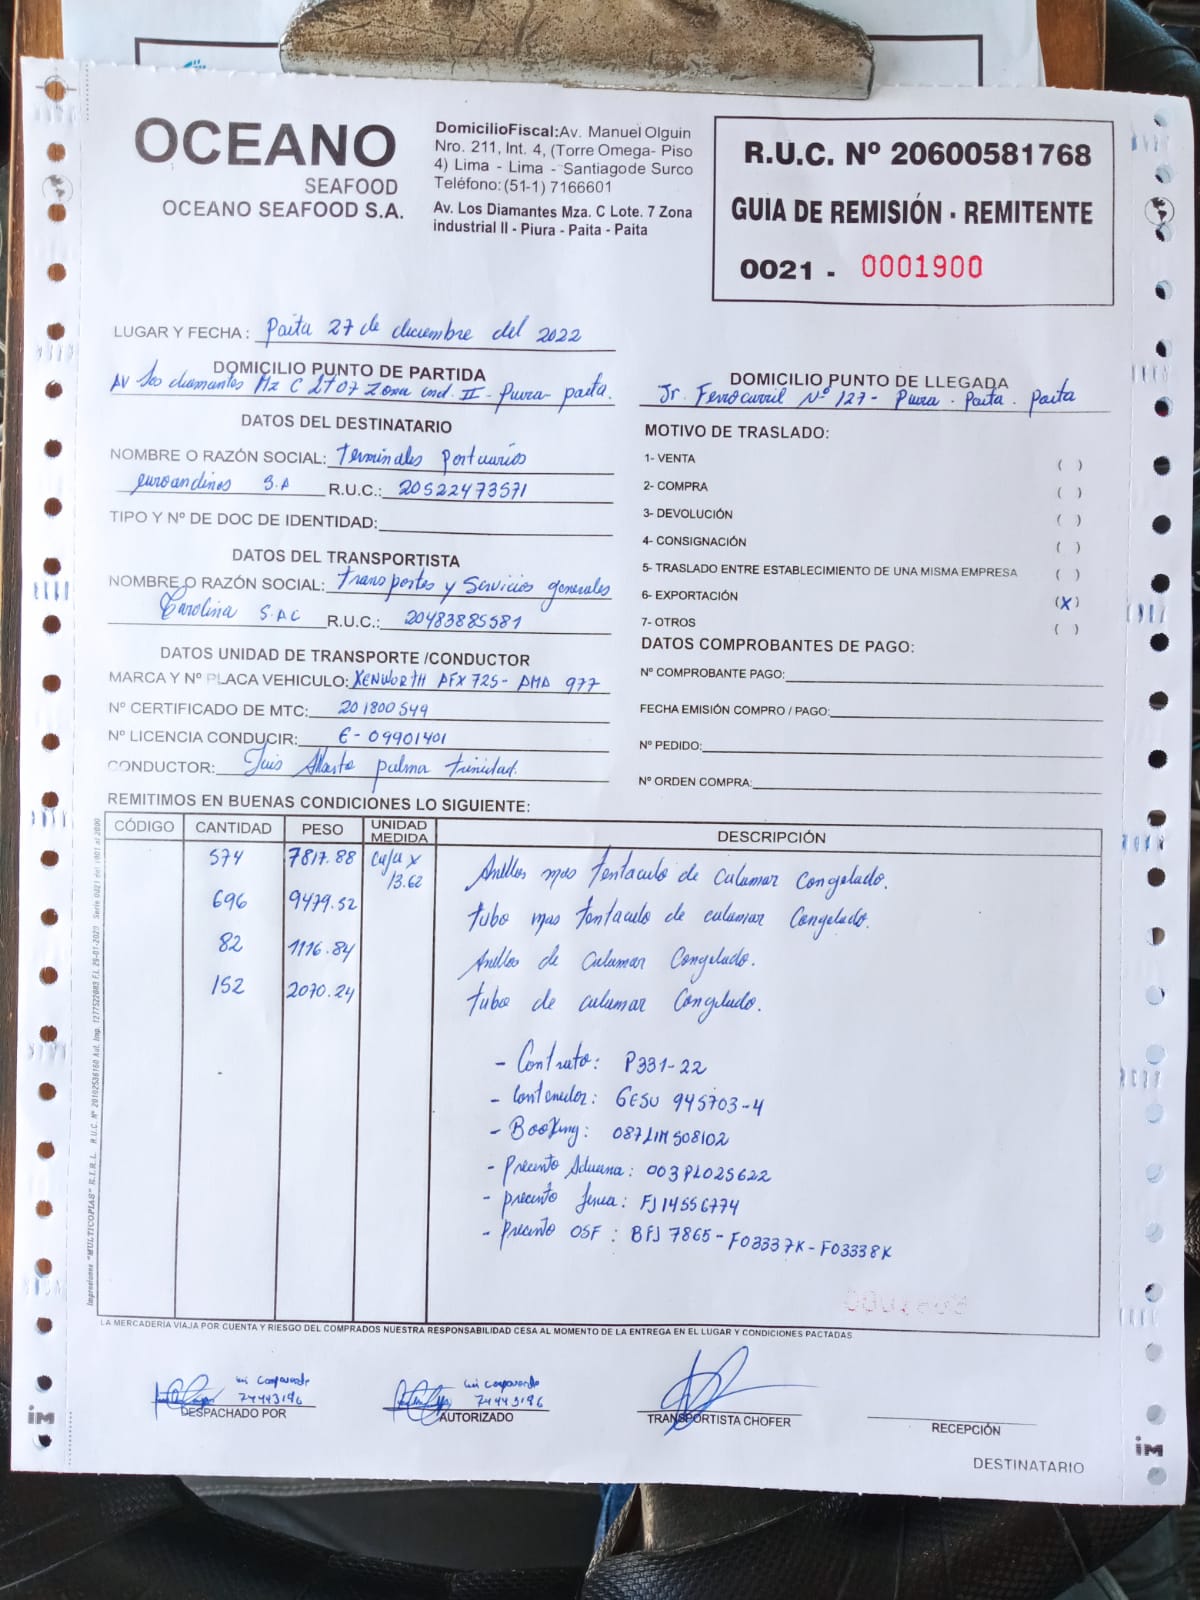 OCEANO
SEAFOOD
OCEANO SEAFOOD S.A.
DomicilioFiscal:Av. Manuel Olguin
Nro. 211, Int. 4, (Torre Omega- Piso
4) Lima - Lima - Santiagode Surco
Teléfono:(51-1) 7166601
Av. Los Diamantes Mza. C Lote. 7 Zona
industrial II - Piura - Paita - Paita
R.U.C. Nº 20600581768
GUIA DE REMISIÓN - REMITENTE
0021 - 0001900
LUGAR Y FECHA : Paita 27 de diciembre del 2022
DOMICILIO PUNTO DE PARTIDA
AV Los diamantes Mz C LT 07 Zona ind. II - Piura - paita.
DOMICILIO PUNTO DE LLEGADA
Jr. Ferrocarril Nº 127 - Piura - Paita - Paita
DATOS DEL DESTINATARIO
NOMBRE O RAZÓN SOCIAL: Terminales Portuarios
euroandinos S.A R.U.C.: 20522473571
TIPO Y Nº DE DOC DE IDENTIDAD:
DATOS DEL TRANSPORTISTA
NOMBRE O RAZÓN SOCIAL: Transportes y Servicios generales
Carolina S.A.C R.U.C.: 20483885581
DATOS UNIDAD DE TRANSPORTE /CONDUCTOR
MARCA Y Nº PLACA VEHICULO: KENWORTH AFX 725 - AMA 977
Nº CERTIFICADO DE MTC: 201800549
Nº LICENCIA CONDUCIR: E- 09901401
CONDUCTOR: Luis Alberto palma trinidad.
MOTIVO DE TRASLADO:
1- VENTA ( )
2- COMPRA ( )
3- DEVOLUCIÓN ( )
4- CONSIGNACIÓN ( )
5- TRASLADO ENTRE ESTABLECIMIENTO DE UNA MISMA EMPRESA ( )
6- EXPORTACIÓN (X)
7- OTROS ( )
DATOS COMPROBANTES DE PAGO:
Nº COMPROBANTE PAGO:
FECHA EMISIÓN COMPRO / PAGO:
Nº PEDIDO:
Nº ORDEN COMPRA:
REMITIMOS EN BUENAS CONDICIONES LO SIGUIENTE:
CÓDIGO CANTIDAD PESO UNIDAD MEDIDA DESCRIPCIÓN
574 7817.88 Caja x 13.62 Anillos mas tentaculo de calamar Congelado.
696 9479.52 tubo mas tentaculo de calamar Congelado.
82 1116.84 Anillos de Calamar Congelado.
152 2070.24 tubo de calamar Congelado.
- Contrato: P331-22
- Contenedor: GESU 945703-4
- Booking: 087LIM508102
- Precinto Aduana: 003PL025622
- precinto linea: FJ14556774
- precinto OSF : BFJ 7865 - F03337K - F03338K
LA MERCADERÍA VIAJA POR CUENTA Y RIESGO DEL COMPRADOS NUESTRA RESPONSABILIDAD CESA AL MOMENTO DE LA ENTREGA EN EL LUGAR Y CONDICIONES PACTADAS
74443196
DESPACHADO POR
74443196
AUTORIZADO
TRANSPORTISTA CHOFER
RECEPCIÓN
DESTINATARIO